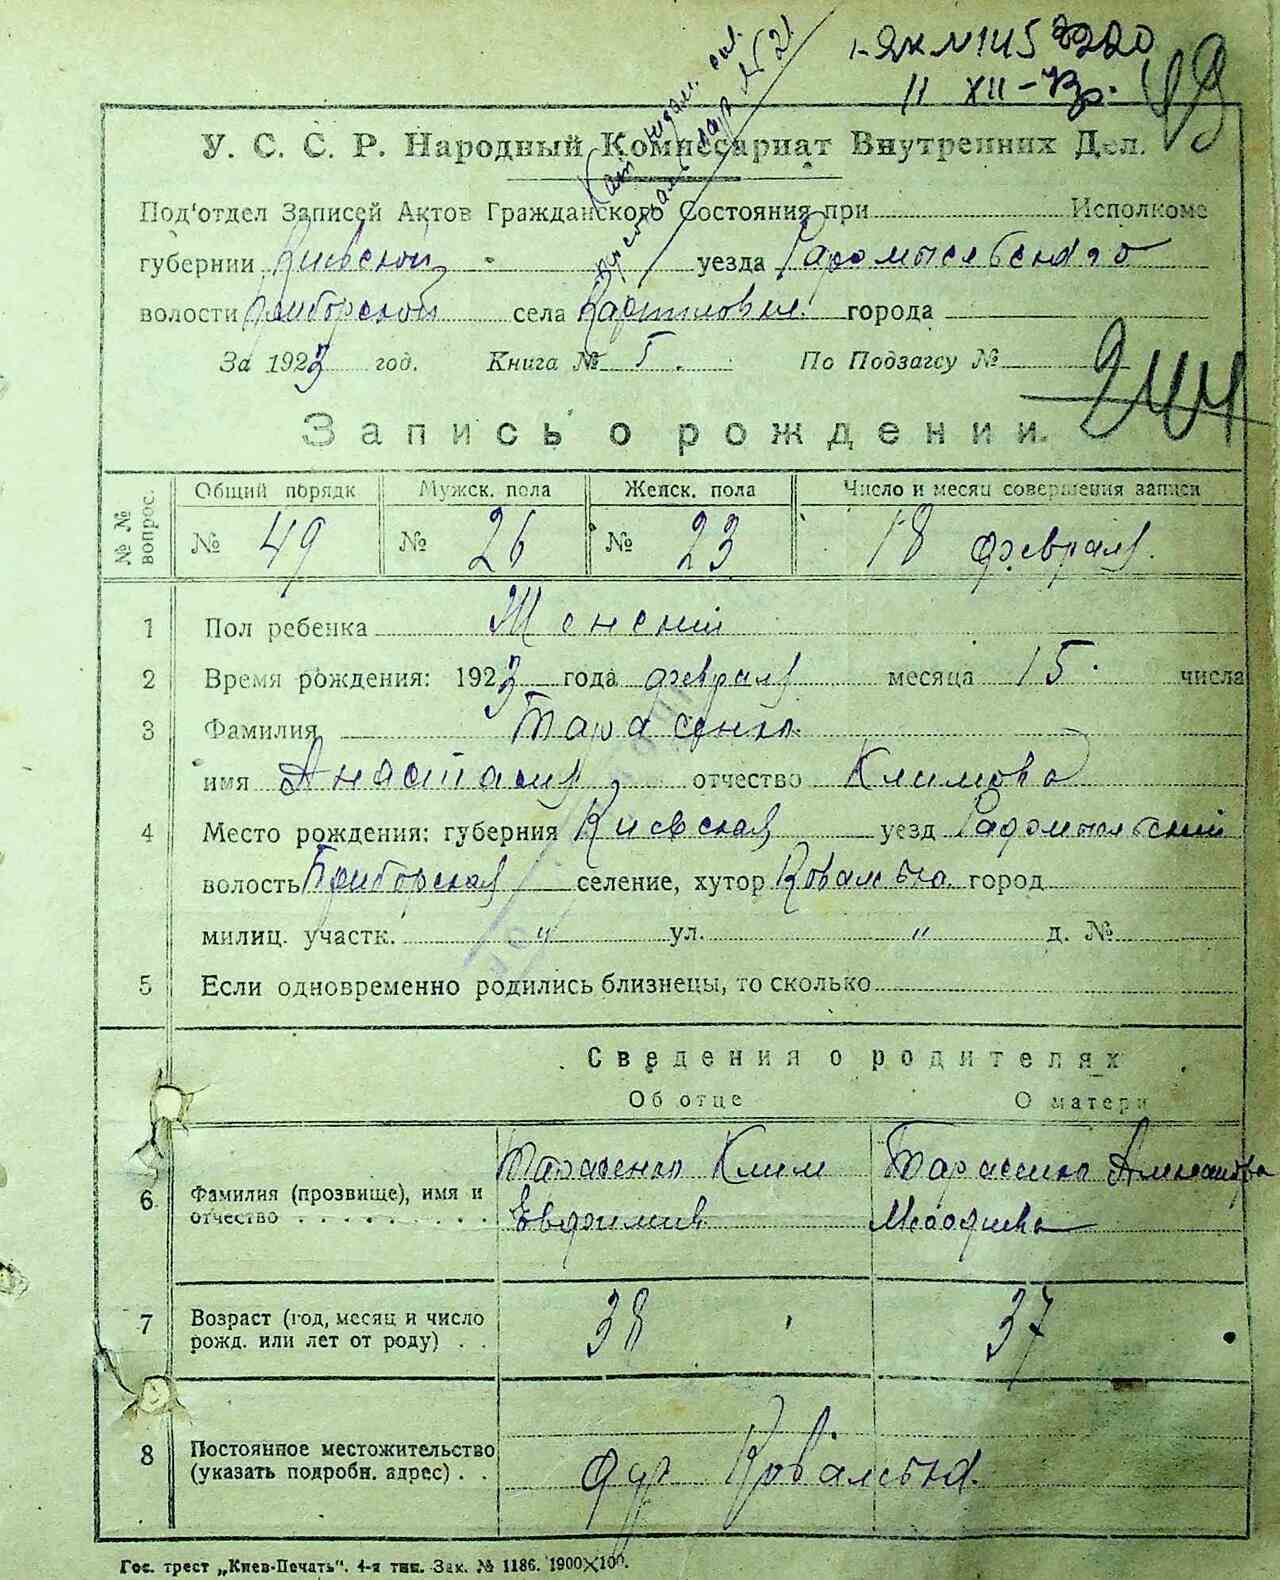 1-ЯК №145
11 XII-
49
У. С. С. Р. Народный Комиссариат Внутренних Дел.
Под'отдел Записей Актов Гражданского Состояния при Исполкоме
губернии Киевской уезда Радомысльского
волости Приборской села города
За 1923 год. Книга № 1. По Подзагсу №
244
Запись о рождении.
№ № вопрос. Общий порядк Мужск. пола Женск. пола Число и месяц совершения записи
№ 49 № 26 № 23 18 февраля.
1 Пол ребенка Женский
2 Время рождения: 1923 года февраля месяца 15. числа
3 Фамилия Тарасенко
имя Анастасия отчество Климова
4 Место рождения: губерния Киевская уезд Радомысльский
волость Приборская селение, хутор Ковалевка город
милиц. участк. " ул. " д. №
5 Если одновременно родились близнецы, то сколько
Сведения о родителях
Об отце О матери
6 Фамилия (прозвище), имя и отчество Тарасенко Клим Тарасенко Александра
Евдоким.
7 Возраст (год, месяц и число рожд. или лет от роду) . . 38 37
8 Постоянное местожительство (указать подробн. адрес) . . Ковалевка.
Гос. трест „Киев-Печать". 4-я тип. Зак. № 1186. 1900×100.